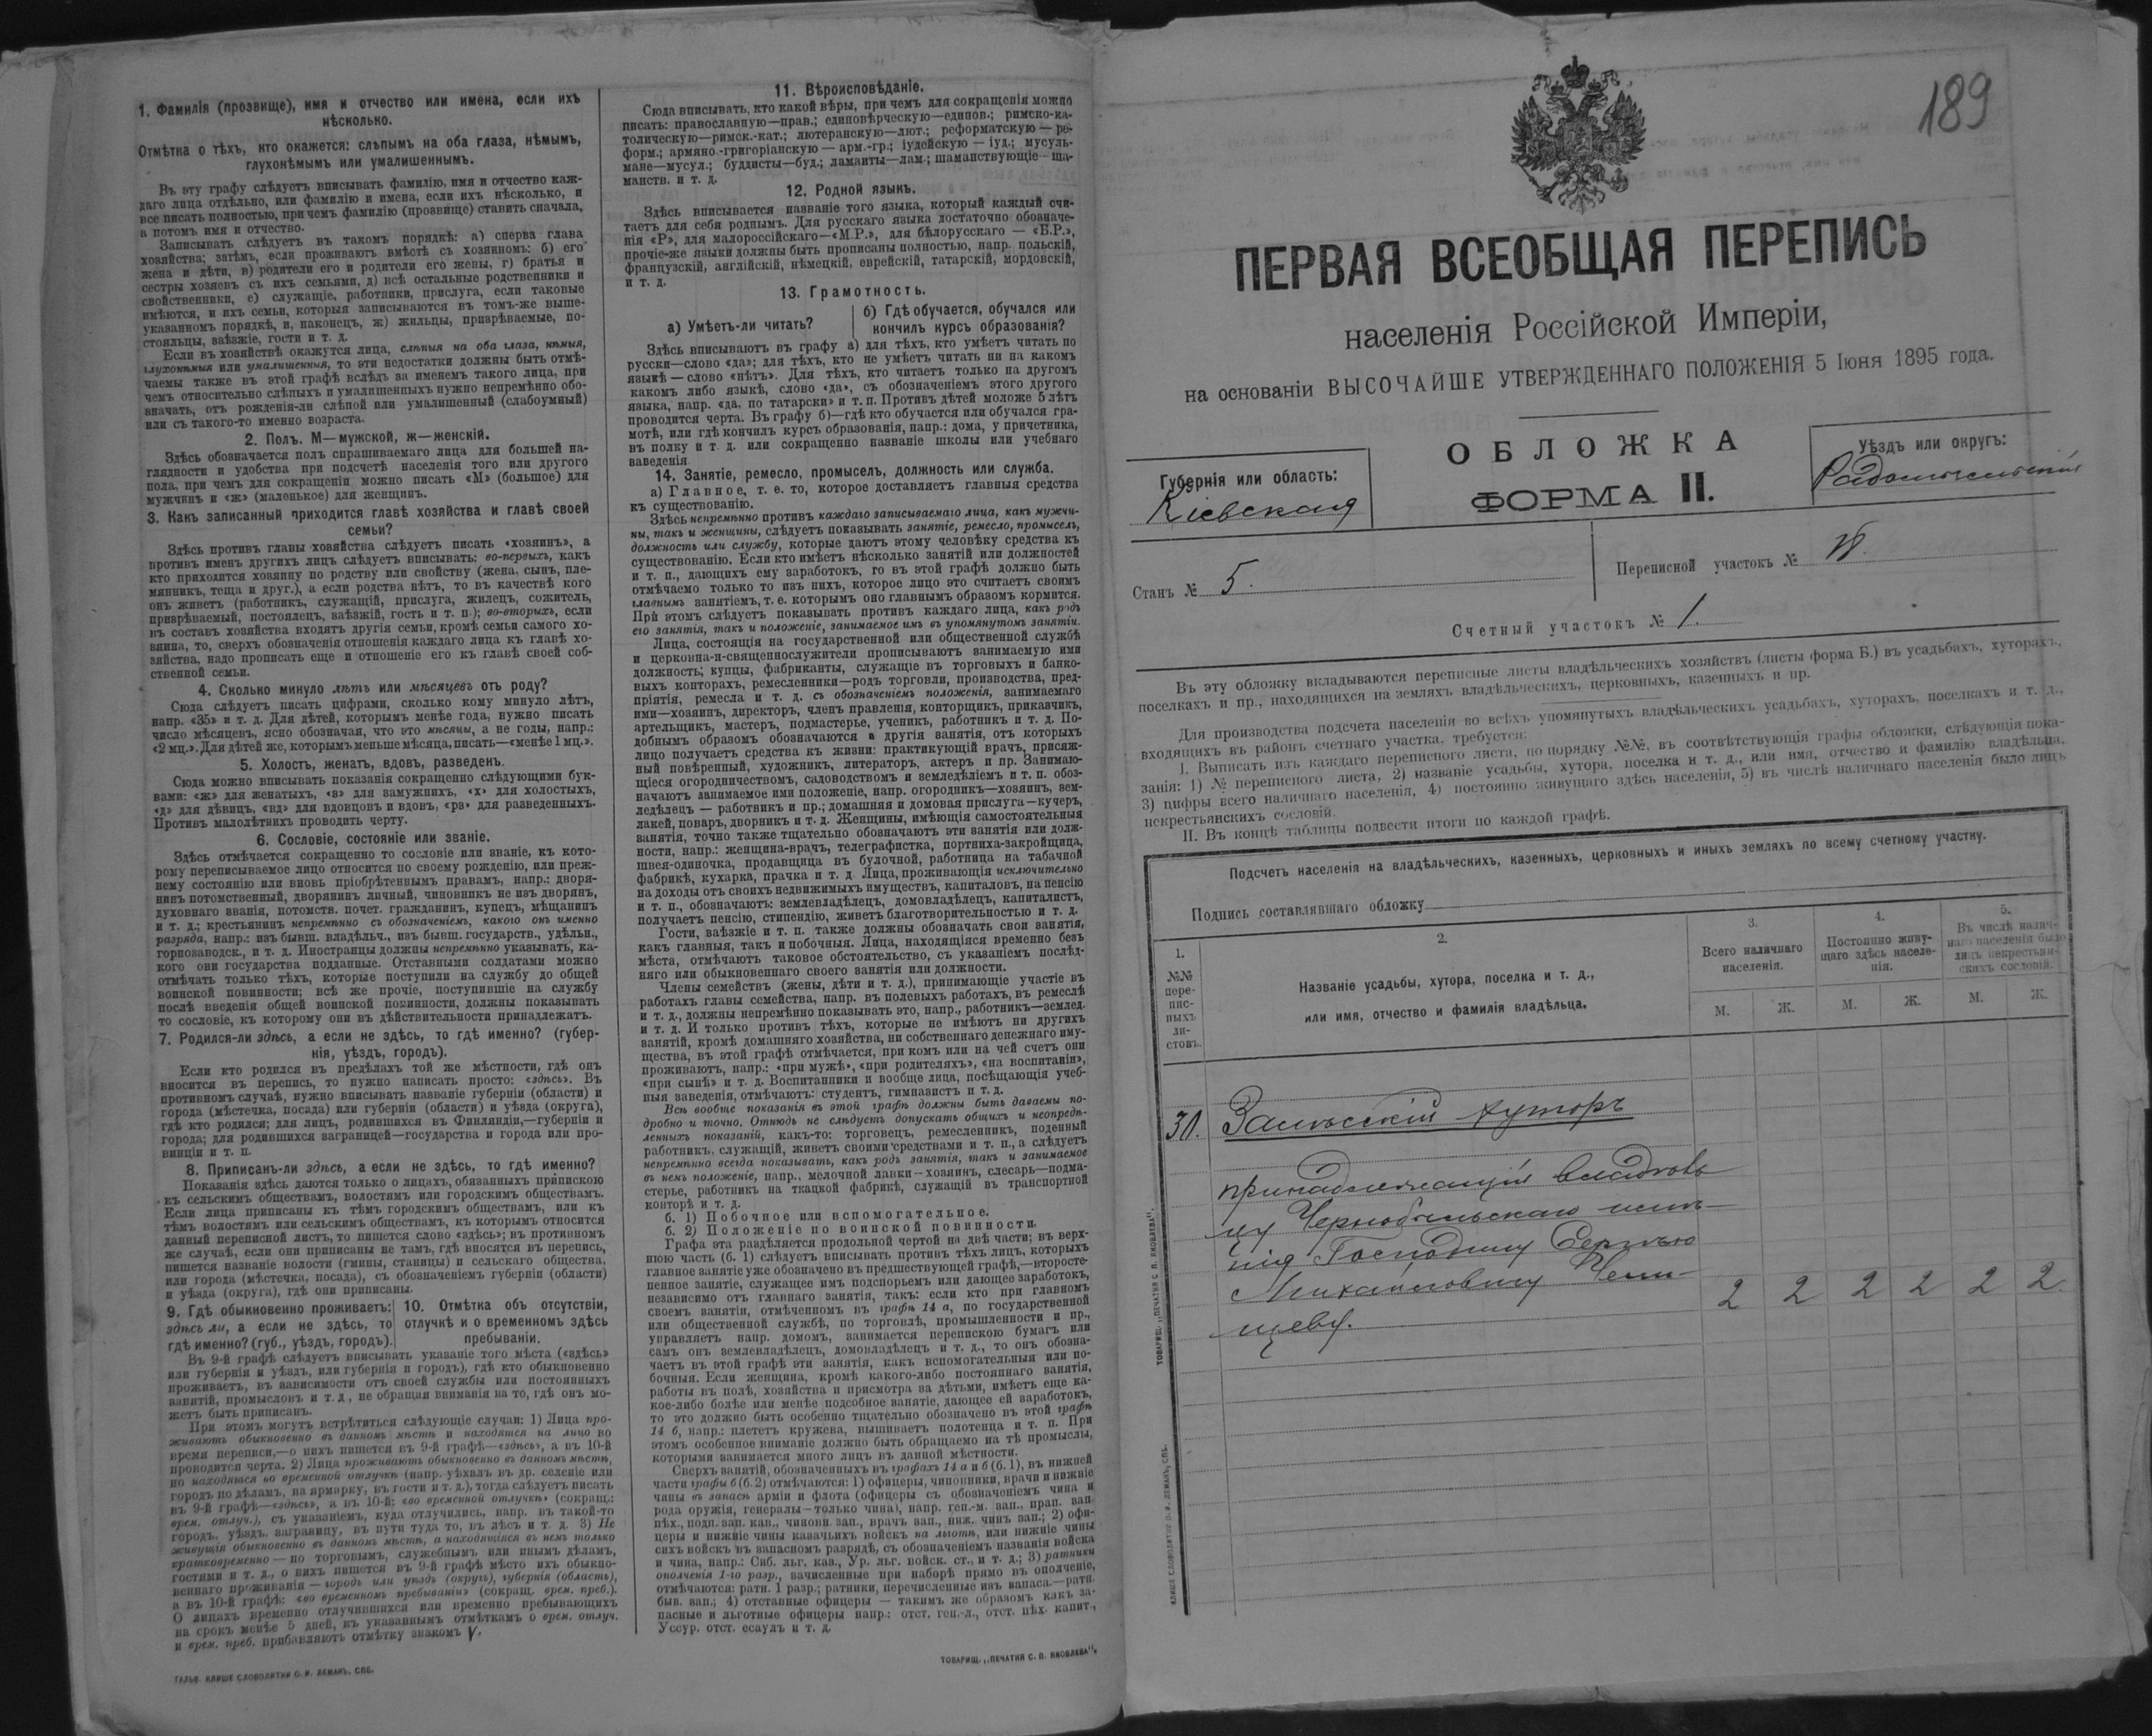 1. Фамилія (прозвище), имя и отчество или имена, если ихъ
нѣсколько.
Отмѣтка о тѣхъ, кто окажется: слѣпымъ на оба глаза, нѣмымъ,
глухонѣмымъ или умалишеннымъ.
Въ эту графу слѣдуетъ вписывать фамилію, имя и отчество каж-
даго лица отдѣльно, или фамилію и имена, если ихъ нѣсколько, и
все писать полностью, при чемъ фамилію (прозвище) ставить сначала,
а потомъ имя и отчество.
Записывать слѣдуетъ въ такомъ порядкѣ: а) сперва глава
хозяйства; затѣмъ, если проживаютъ вмѣстѣ съ хозяиномъ: б) его
жена и дѣти, в) родители его и родители его жены, г) братья и
сестры хозяевъ съ ихъ семьями, д) всѣ остальные родственники и
свойственники, е) служащіе, работники, прислуга, если таковые
имѣются, и ихъ семьи, которыя записываются въ томъ-же выше-
указанномъ порядкѣ, и, наконецъ, ж) жильцы, призрѣваемые, по-
стояльцы, заѣзжіе, гости и т. д.
Если въ хозяйствѣ окажутся лица, слѣпыя на оба глаза, нѣмыя,
глухонѣмыя или умалишенныя, то эти недостатки должны быть отмѣ-
чаемы также въ этой графѣ вслѣдъ за именемъ такого лица, при
чемъ относительно слѣпыхъ и умалишенныхъ нужно непремѣнно обо-
значать, отъ рожденія-ли слѣпой или умалишенный (слабоумный)
или съ такого-то именно возраста.
2. Полъ. М—мужской, ж—женскій.
Здѣсь обозначается полъ спрашиваемаго лица для большей на-
глядности и удобства при подсчетѣ населенія того или другого
пола, при чемъ для сокращенія можно писать «М» (большое) для
мужчинъ и «ж» (маленькое) для женщинъ.
3. Какъ записанный приходится главѣ хозяйства и главѣ своей
семьи?
Здѣсь противъ главы хозяйства слѣдуетъ писать «хозяинъ», а
противъ именъ другихъ лицъ слѣдуетъ вписывать: во-первыхъ, какъ
кто приходится хозяину по родству или свойству (жена, сынъ, пле-
мянникъ, теща и друг.), а если родства нѣтъ, то въ качествѣ кого
онъ живетъ (работникъ, служащій, прислуга, жилецъ, сожитель,
призрѣваемый, постоялецъ, заѣзжій, гость и т. п.); во-вторыхъ, если
въ составъ хозяйства входятъ другія семьи, кромѣ семьи самого хо-
зяина, то, сверхъ обозначенія отношенія каждаго лица къ главѣ хо-
зяйства, надо прописать еще и отношеніе его къ главѣ своей соб-
ственной семьи.
4. Сколько минуло лѣтъ или мѣсяцевъ отъ роду?
Сюда слѣдуетъ писать цифрами, сколько кому минуло лѣтъ,
напр. «35» и т. д. Для дѣтей, которымъ менѣе года, нужно писать
число мѣсяцевъ, ясно обозначая, что это мѣсяцы, а не годы, напр.:
«2 мц.». Для дѣтей же, которымъ меньше мѣсяца, писать—«менѣе 1 мц.».
5. Холостъ, женатъ, вдовъ, разведенъ.
Сюда можно вписывать показанія сокращенно слѣдующими бук-
вами: «ж» для женатыхъ, «з» для замужнихъ, «х» для холостыхъ,
«д» для дѣвицъ, «вд» для вдовцовъ и вдовъ, «рз» для разведенныхъ.
Противъ малолѣтнихъ проводить черту.
6. Сословіе, состояніе или званіе.
Здѣсь отмѣчается сокращенно то сословіе или званіе, къ кото-
рому переписываемое лицо относится по своему рожденію, или преж-
нему состоянію или вновь пріобрѣтеннымъ правамъ, напр.: дворя-
нинъ потомственный, дворянинъ личный, чиновникъ не изъ дворянъ,
духовнаго званія, потомств. почет. гражданинъ, купецъ, мѣщанинъ
и т. д.; крестьянинъ непремѣнно съ обозначеніемъ, какого онъ именно
разряда, напр.: изъ бывш. владѣльч., изъ бывш. государств., удѣльн.,
горнозаводск., и т. д. Иностранцы должны непремѣнно указывать, ка-
кого они государства подданные. Отставными солдатами можно
отмѣчать только тѣхъ, которые поступили на службу до общей
воинской повинности; всѣ же прочіе, поступившіе на службу
послѣ введенія общей воинской повинности, должны показывать
то сословіе, къ которому они въ дѣйствительности принадлежатъ.
7. Родился-ли здѣсь, а если не здѣсь, то гдѣ именно? (губер-
нія, уѣздъ, городъ).
Если кто родился въ предѣлахъ той же мѣстности, гдѣ онъ
вносится въ перепись, то нужно написать просто: «здѣсь». Въ
противномъ случаѣ, нужно вписывать названіе губерніи (области) и
города (мѣстечка, посада) или губерніи (области) и уѣзда (округа),
гдѣ кто родился; для лицъ, родившихся въ Финляндіи,—губерніи и
города; для родившихся заграницей—государства и города или про-
винціи и т. п.
8. Приписанъ-ли здѣсь, а если не здѣсь, то гдѣ именно?
Показанія здѣсь даются только о лицахъ, обязанныхъ припискою
къ сельскимъ обществамъ, волостямъ или городскимъ обществамъ.
Если лица приписаны къ тѣмъ городскимъ обществамъ, или къ
тѣмъ волостямъ или сельскимъ обществамъ, къ которымъ относится
данный переписной листъ, то пишется слово «здѣсь»; въ противномъ
же случаѣ, если они приписаны не тамъ, гдѣ вносятся въ перепись,
пишется названіе волости (гмины, станицы) и сельскаго общества,
или города (мѣстечка, посада), съ обозначеніемъ губерніи (области)
и уѣзда (округа), гдѣ они приписаны.
9. Гдѣ обыкновенно проживаетъ: здѣсь ли, а если не здѣсь, то гдѣ именно? (губ., уѣздъ, городъ).
10. Отмѣтка объ отсутствіи, отлучкѣ и о временномъ здѣсь пребываніи.
Въ 9-й графѣ слѣдуетъ вписывать указаніе того мѣста («здѣсь»
или губернія и уѣздъ, или губернія и городъ), гдѣ кто обыкновенно
проживаетъ, въ зависимости отъ своей службы или постоянныхъ
занятій, промысловъ и т. д., не обращая вниманія на то, гдѣ онъ мо-
жетъ быть приписанъ.
При этомъ могутъ встрѣтиться слѣдующіе случаи: 1) Лица про-
живаютъ обыкновенно въ данномъ мѣстѣ и находятся на лицо во
время переписи,—о нихъ пишется въ 9-й графѣ—«здѣсь», а въ 10-й
проводится черта. 2) Лица проживаютъ обыкновенно въ данномъ мѣстѣ,
но находятся во временной отлучкѣ (напр. уѣхалъ въ др. селеніе или
городъ по дѣламъ, на ярмарку, въ гости и т. д.), тогда слѣдуетъ писать
въ 9-й графѣ—«здѣсь», а въ 10-й: «во временной отлучкѣ» (сокращ.:
врем. отлуч.), съ указаніемъ, куда отлучились, напр. въ такой-то
городъ, уѣздъ, заграницу, въ пути туда то, въ лѣсъ и т. д. 3) Не
живущія обыкновенно въ данномъ мѣстѣ, а находящіяся въ немъ только
кратковременно — по торговымъ, служебнымъ или инымъ дѣламъ,
гостями и т. д., о нихъ пишется въ 9-й графѣ мѣсто ихъ обыкно-
веннаго проживанія — городъ или уѣздъ (округъ), губернія (область),
а въ 10-й графѣ: «во временномъ пребываніи» (сокращ. врем. преб.).
О лицахъ временно отлучившихся или временно пребывающихъ
на срокъ менѣе 5 дней, къ указаннымъ отмѣткамъ о врем. отлуч.
и врем. преб. прибавляютъ отмѣтку знакомъ V.
ГАЛЬВ. КЛИШЕ СЛОВОЛИТНИ О. И. ЛЕМАНЪ, СПБ.
11. Вѣроисповѣданіе.
Сюда вписывать, кто какой вѣры, при чемъ для сокращенія можно
писать: православную—прав.; единовѣрческую—единов.; римско-ка-
толическую—римск.-кат.; лютеранскую—лют.; реформатскую — ре-
форм.; армяно-григоріанскую — арм.-гр.; іудейскую — іуд.; мусуль-
мане—мусул.; буддисты—буд.; ламаиты—лам.; шаманствующіе—ша-
манств. и т. д.
12. Родной языкъ.
Здѣсь вписывается названіе того языка, который каждый счи-
таетъ для себя роднымъ. Для русскаго языка достаточно обозначе-
нія «Р», для малороссійскаго—«М.Р.», для бѣлорусскаго — «Б.Р.»,
прочіе-же языки должны быть прописаны полностью, напр. польскій,
французскій, англійскій, нѣмецкій, еврейскій, татарскій, мордовскій,
и т. д.
13. Грамотность.
а) Умѣетъ-ли читать?
б) Гдѣ обучается, обучался или кончилъ курсъ образованія?
Здѣсь вписываютъ въ графу а) для тѣхъ, кто умѣетъ читать по
русски—слово «да»; для тѣхъ, кто не умѣетъ читать ни на какомъ
языкѣ — слово «нѣтъ». Для тѣхъ, кто читаетъ только на другомъ
какомъ либо языкѣ, слово «да», съ обозначеніемъ этого другого
языка, напр. «да, по татарски» и т. п. Противъ дѣтей моложе 5 лѣтъ
проводится черта. Въ графу б)—гдѣ кто обучается или обучался гра-
мотѣ, или гдѣ кончилъ курсъ образованія, напр.: дома, у причетника,
въ полку и т. д. или сокращенно названіе школы или учебнаго
заведенія.
14. Занятіе, ремесло, промыселъ, должность или служба.
а) Главное, т. е. то, которое доставляетъ главныя средства
къ существованію.
Здѣсь непремѣнно противъ каждаго записываемаго лица, какъ мужчи-
ны, такъ и женщины, слѣдуетъ показывать занятіе, ремесло, промыселъ,
должность или службу, которые даютъ этому человѣку средства къ
существованію. Если кто имѣетъ нѣсколько занятій или должностей
и т. п., дающихъ ему заработокъ, то въ этой графѣ должно быть
отмѣчаемо только то изъ нихъ, которое лицо это считаетъ своимъ
главнымъ занятіемъ, т. е. которымъ оно главнымъ образомъ кормится.
При этомъ слѣдуетъ показывать противъ каждаго лица, какъ родъ
его занятія, такъ и положеніе, занимаемое имъ въ упомянутомъ занятіи.
Лица, состоящія на государственной или общественной службѣ
и церковно-и-священнослужители прописываютъ занимаемую ими
должность; купцы, фабриканты, служащіе въ торговыхъ и банко-
выхъ конторахъ, ремесленники—родъ торговли, производства, пред-
пріятія, ремесла и т. д. съ обозначеніемъ положенія, занимаемаго
ими—хозяинъ, директоръ, членъ правленія, конторщикъ, приказчикъ,
артельщикъ, мастеръ, подмастерье, ученикъ, работникъ и т. д. По-
добнымъ образомъ обозначаются и другія занятія, отъ которыхъ
лицо получаетъ средства къ жизни: практикующій врачъ, присяж-
ный повѣренный, художникъ, литераторъ, актеръ и пр. Занимаю-
щіеся огородничествомъ, садоводствомъ и земледѣліемъ и т. п. обоз-
начаютъ занимаемое ими положеніе, напр. огородникъ—хозяинъ, зем-
ледѣлецъ — работникъ и пр.; домашняя и домовая прислуга—кучеръ,
лакей, поваръ, дворникъ и т. д. Женщины, имѣющія самостоятельныя
занятія, точно также тщательно обозначаютъ эти занятія или долж-
ности, напр.: женщина-врачъ, телеграфистка, портниха-закройщица,
швея-одиночка, продавщица въ булочной, работница на табачной
фабрикѣ, кухарка, прачка и т. д. Лица, проживающія исключительно
на доходы отъ своихъ недвижимыхъ имуществъ, капиталовъ, на пенсію
и т. п., обозначаютъ: землевладѣлецъ, домовладѣлецъ, капиталистъ,
получаетъ пенсію, стипендію, живетъ благотворительностью и т. д.
Гости, заѣзжіе и т. п. также должны обозначать свои занятія,
какъ главныя, такъ и побочныя. Лица, находящіяся временно безъ
мѣста, отмѣчаютъ таковое обстоятельство, съ указаніемъ послѣд-
няго или обыкновеннаго своего занятія или должности.
Члены семействъ (жены, дѣти и т. д.), принимающіе участіе въ
работахъ главы семейства, напр. въ полевыхъ работахъ, въ ремеслѣ
и т. д., должны непремѣнно показывать это, напр., работникъ—землед.
и т. д. И только противъ тѣхъ, которые не имѣютъ ни другихъ
занятій, кромѣ домашняго хозяйства, ни собственнаго денежнаго иму-
щества, въ этой графѣ отмѣчается, при комъ или на чей счетъ они
проживаютъ, напр.: «при мужѣ», «при родителяхъ», «на воспитаніи»,
«при сынѣ» и т. д. Воспитанники и вообще лица, посѣщающія учеб-
ныя заведенія, отмѣчаютъ: студентъ, гимназистъ и т. д.
Всѣ вообще показанія въ этой графѣ должны быть даваемы по-
дробно и точно. Отнюдь не слѣдуетъ допускать общихъ и неопредѣ-
ленныхъ показаній, какъ-то: торговецъ, ремесленникъ, поденный
работникъ, служащій, живетъ своими средствами и т. п., а слѣдуетъ
непремѣнно всегда показывать, какъ родъ занятія, такъ и занимаемое
въ немъ положеніе, напр., мелочной лавки—хозяинъ, слесарь—подма-
стерье, работникъ на ткацкой фабрикѣ, служащій въ транспортной
конторѣ и т. д.
б. 1) Побочное или вспомогательное.
б. 2) Положеніе по воинской повинности.
Графа эта раздѣляется продольной чертой на двѣ части; въ верх-
нюю часть (б. 1) слѣдуетъ вписывать противъ тѣхъ лицъ, которыхъ
главное занятіе уже обозначено въ предшествующей графѣ,—второсте-
пенное занятіе, служащее имъ подспорьемъ или дающее заработокъ,
независимо отъ главнаго занятія, такъ: если кто при главномъ
своемъ занятіи, отмѣченномъ въ графѣ 14 а, по государственной
или общественной службѣ, по торговлѣ, промышленности и пр.,
управляетъ напр. домомъ, занимается перепискою бумагъ или
самъ онъ землевладѣлецъ, домовладѣлецъ и т. д., то онъ обозна-
чаетъ въ этой графѣ эти занятія, какъ вспомогательныя или по-
бочныя. Если женщина, кромѣ какого-либо постояннаго занятія,
работы въ полѣ, хозяйства и присмотра за дѣтьми, имѣетъ еще ка-
кое-либо болѣе или менѣе подсобное занятіе, дающее ей заработокъ,
то это должно быть особенно тщательно обозначено въ этой графѣ
14 б, напр.: плететъ кружева, вышиваетъ полотенца и т. п. При
этомъ особенное вниманіе должно быть обращаемо на тѣ промыслы,
которыми занимается много лицъ въ данной мѣстности.
Сверхъ занятій, обозначенныхъ въ графахъ 14 а и б (б. 1), въ нижней
части графы б (б. 2) отмѣчаются: 1) офицеры, чиновники, врачи и нижніе
чины въ запасѣ арміи и флота (офицеры съ обозначеніемъ чина и
рода оружія, генералы—только чина), напр. ген.-м. зап., прап. зап.
пѣх., подп. зап. кав., чиновн. зап., врачъ зап., ниж. чинъ зап.; 2) офи-
церы и нижніе чины казачьихъ войскъ на льготѣ, или нижніе чины
сихъ войскъ въ запасномъ разрядѣ, съ обозначеніемъ названія войска
и чина, напр.: Сиб. льг. каз., Ур. льг. войск. ст., и т. д.; 3) ратники
ополченія 1-го разр., зачисленные при наборѣ прямо въ ополченіе,
отмѣчаются: ратн. 1 разр.; ратники, перечисленные изъ запаса.—ратн.
быв. зап.; 4) отставные офицеры — такимъ же образомъ какъ за-
пасные и льготные офицеры напр.: отст. ген.-л., отст. пѣх. капит.,
Уссур. отст. есаулъ и т. д.
ТОВАРИЩ. „ПЕЧАТНЯ С. П. ЯКОВЛЕВА“.
189
ПЕРВАЯ ВСЕОБЩАЯ ПЕРЕПИСЬ
населенія Россійской Имперіи,
на основаніи ВЫСОЧАЙШЕ УТВЕРЖДЕННАГО ПОЛОЖЕНІЯ 5 Іюня 1895 года.
ОБЛОЖКА
ФОРМА II.
Губернія или область:
Кіевская
Уѣздъ или округъ:
Радомысльскій
Станъ № 5.
Переписной участокъ №
Счетный участокъ № 1.
Въ эту обложку вкладываются переписные листы владѣльческихъ хозяйствъ (листы форма Б.) въ усадьбахъ, хуторахъ,
поселкахъ и пр., находящихся на земляхъ владѣльческихъ, церковныхъ, казенныхъ и пр.
Для производства подсчета населенія во всѣхъ упомянутыхъ владѣльческихъ усадьбахъ, хуторахъ, поселкахъ и т. д.,
входящихъ въ районъ счетнаго участка, требуется:
I. Выписать изъ каждаго переписнаго листа, по порядку №№, въ соотвѣтствующія графы обложки, слѣдующія пока-
занія: 1) № переписного листа, 2) названіе усадьбы, хутора, поселка и т. д., или имя, отчество и фамилію владѣльца,
3) цифры всего наличнаго населенія, 4) постоянно живущаго здѣсь населенія, 5) въ числѣ наличнаго населенія было лицъ
некрестьянскихъ сословій.
II. Въ концѣ таблицы подвести итоги по каждой графѣ.
Подсчетъ населенія на владѣльческихъ, казенныхъ, церковныхъ и иныхъ земляхъ по всему счетному участку.
Подпись составлявшаго обложку
1.
№№ пере- пис- ныхъ ли- стовъ.
2.
Названіе усадьбы, хутора, поселка и т. д.,
или имя, отчество и фамилія владѣльца.
3.
Всего наличнаго населенія.
4.
Постоянно живу- щаго здѣсь населе- нія.
5.
Въ числѣ налич- наго населенія было лицъ некрестьян- скихъ сословій.
М. Ж. М. Ж. М. Ж.
30. Залѣсскій хуторъ
принадлежащій владѣль-
цу Чернобыльскаго имѣ-
нія Господину Сергѣю
Михайловичу Чели-
щеву.
2 2 2 2 2 2.
ТОВАРИЩ. „ПЕЧАТНЯ С. П. ЯКОВЛЕВА“.
КЛИШЕ СЛОВОЛИТНИ О. И. ЛЕМАНЪ, СПБ.